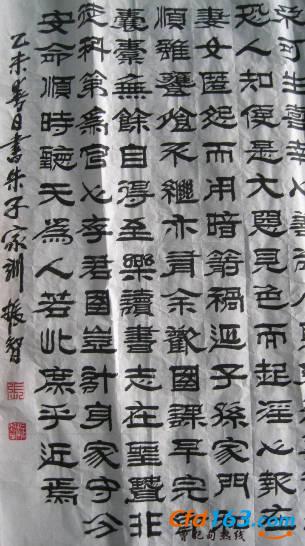 不可生喜
恐人知便是大惡見色而起淫心報在
妻女匿怨而用暗箭禍延子孫家門
順雖饔飧不繼亦有余歡國課早完
囊橐無餘自得至樂讀書志在聖賢非
徒科第為官心存君國豈計身家守分
安命順時聽天為人若此庶乎近焉
乙未春日書朱子家訓 振智
Cfd163.com